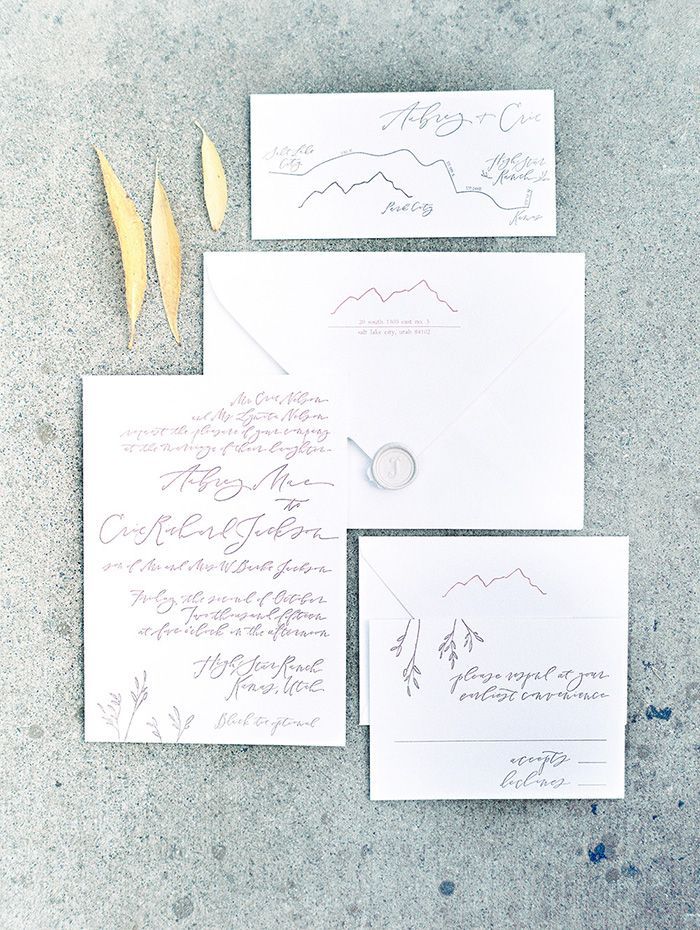 Aubrey + Eric
Salt Lake
City
High Star
Ranch
Park City
Kamas
20 south 1300 east no. 3
salt lake city, utah 84102
J
Mr Eric Nelson
and Ms Lynita Nelson
request the pleasure of your company
at the marriage of their daughter
Aubrey Mae
to
Eric Richard Jackson
son of Mr and Mrs W Burke Jackson
Friday, the second of October
Two thousand fifteen
at five o'clock in the afternoon
High Star Ranch
Kamas, Utah
Black tie optional
please respond at your
earliest convenience
accepts
declines